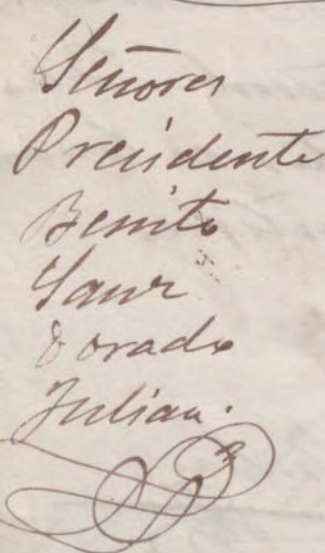 Señores
Presidente
Benito
Sanz
Dorado
Julian.